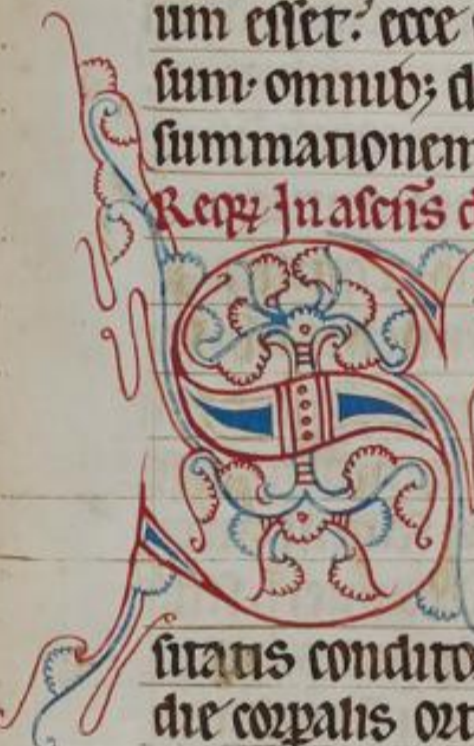 um esset: ecce
sum· omnib; d
summationem
Req̃r In ascēs
S
sitatis condito
die corꝑalis or